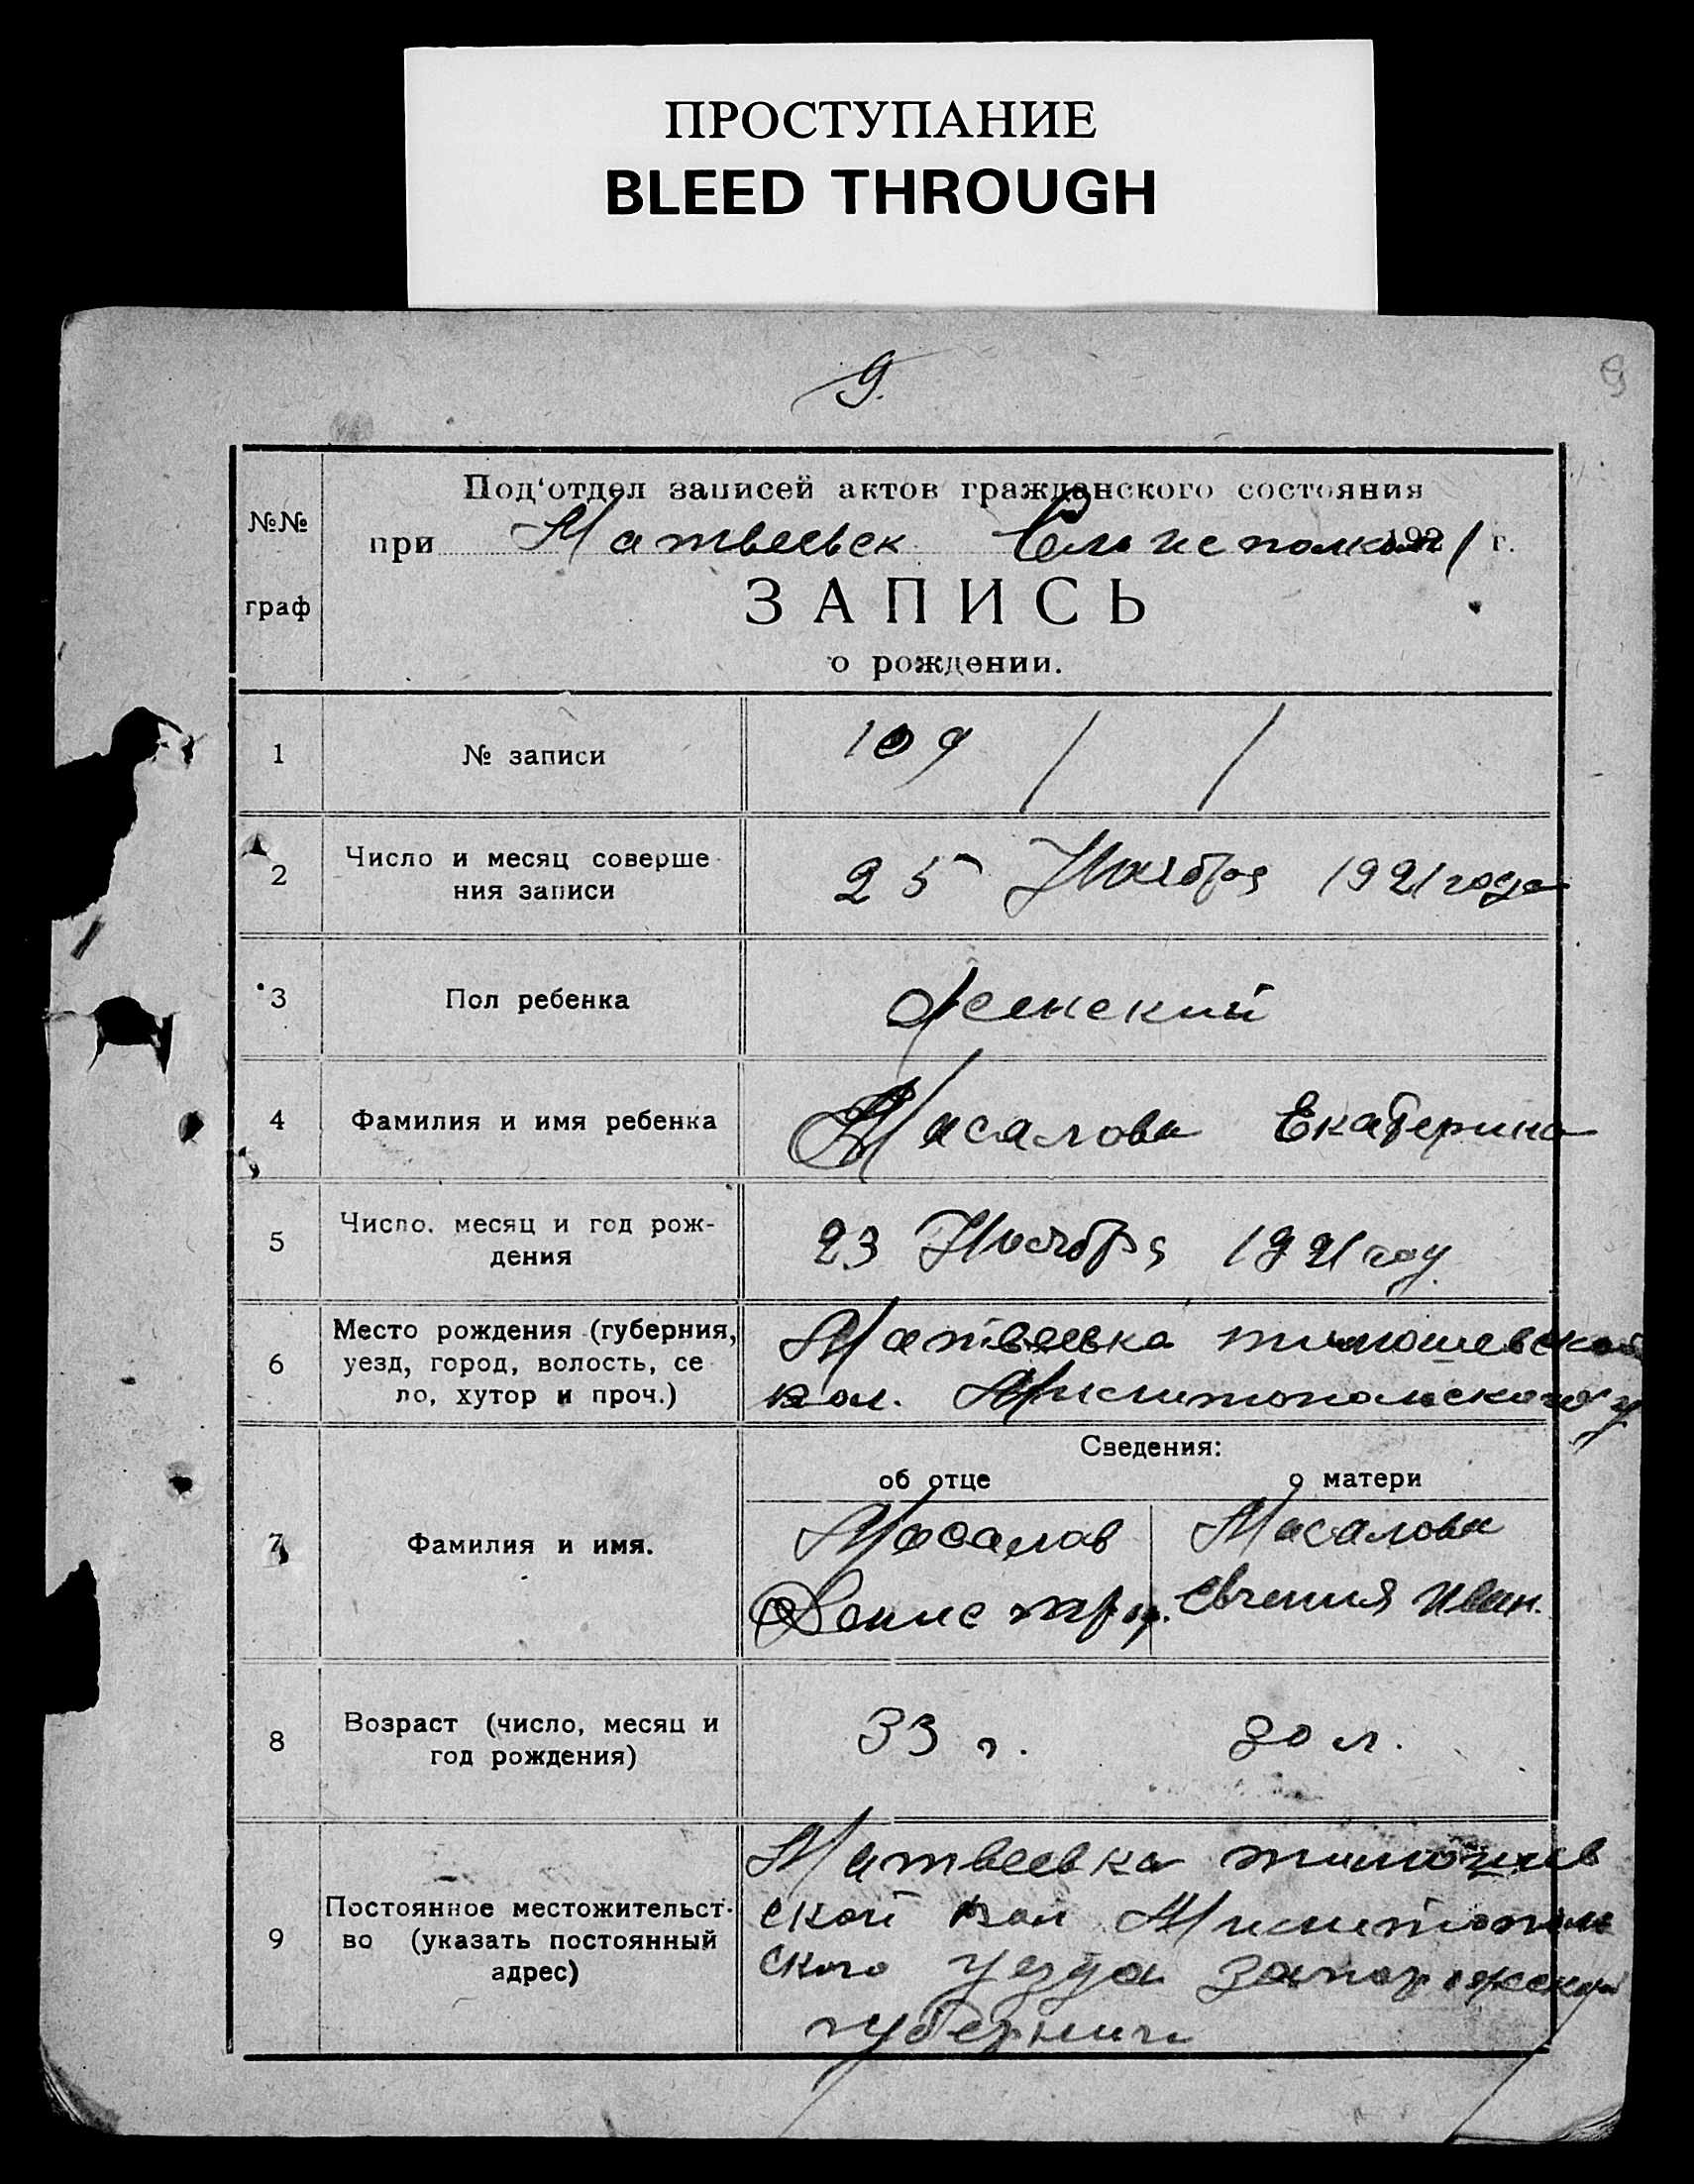 ПРОСТУПАНИЕ
BLEED THROUGH
9.
9
Под‘отдел записей актов гражданского состояния
№№ граф
при Матвеевск Сельисполком 1921 г.
ЗАПИСЬ
о рождении.
1 № записи 109
2 Число и месяц соверше-
ния записи
25 Ноября 1921 года
3 Пол ребенка Женский
4 Фамилия и имя ребенка Масалова Екатерина
5 Число, месяц и год рож-
дения
23 Ноября 1921 году
6 Место рождения (губерния,
уезд, город, волость, се
ло, хутор и проч.)
Матвеевка тимошевской
вол. Милитопольского у
Сведения:
об отце о матери
7 Фамилия и имя.
Масалов
Денис
Масалова
Евгения Иван.
8 Возраст (число, месяц и
год рождения)
33 г. 30 л.
9 Постоянное местожительст-
во (указать постоянный
адрес)
Матвеевка тимошев
ской вол Милитополь
ского уезда запорожской
губернии